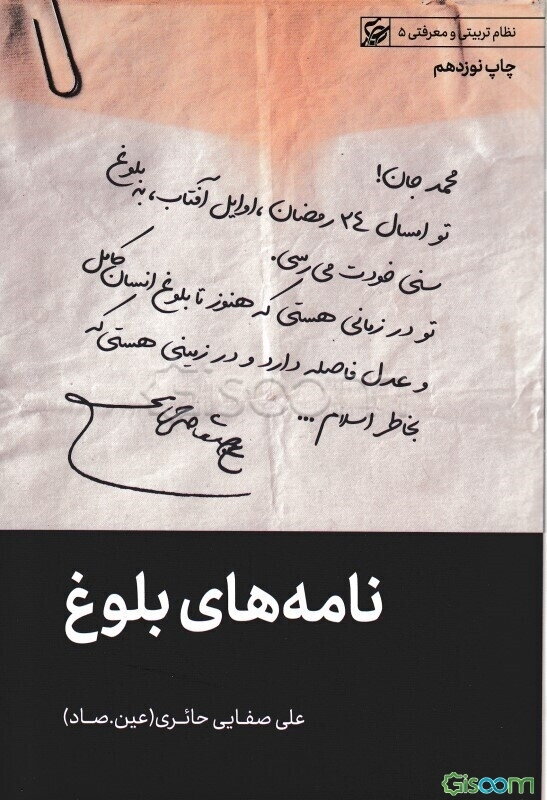 نظام تربیتی و معرفتی ۵
چاپ نوزدهم
محمد جان!
تو امسال ۲٤ رمضان، اوایل آفتاب، به بلوغ
سنی خودت می رسی.
تو در زمانی هستی که هنوز تا بلوغ انسان کامل
و عدل فاصله دارد و در زمینی هستی که
بخاطر اسلام ...
Gisoom
نامه‌های بلوغ
علی صفایی حائری (عین.صاد)
Gisoom